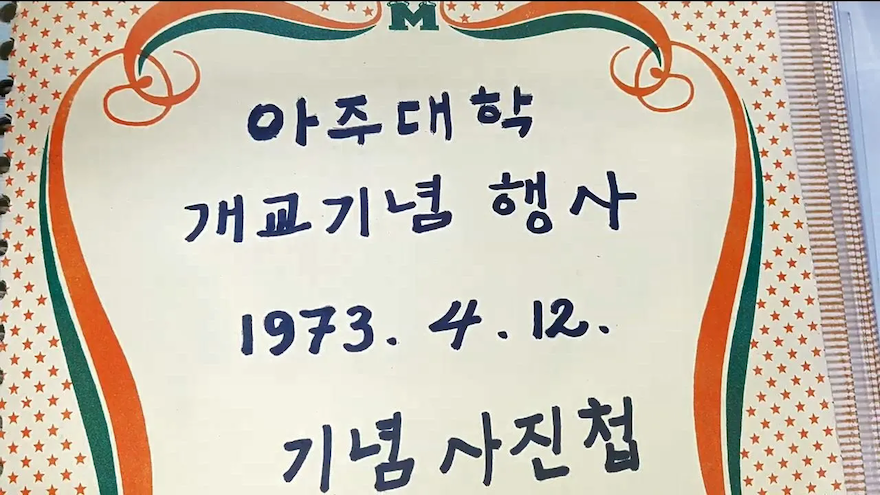 M
아주대학
개교기념 행사
1973. 4. 12.
기념 사진첩